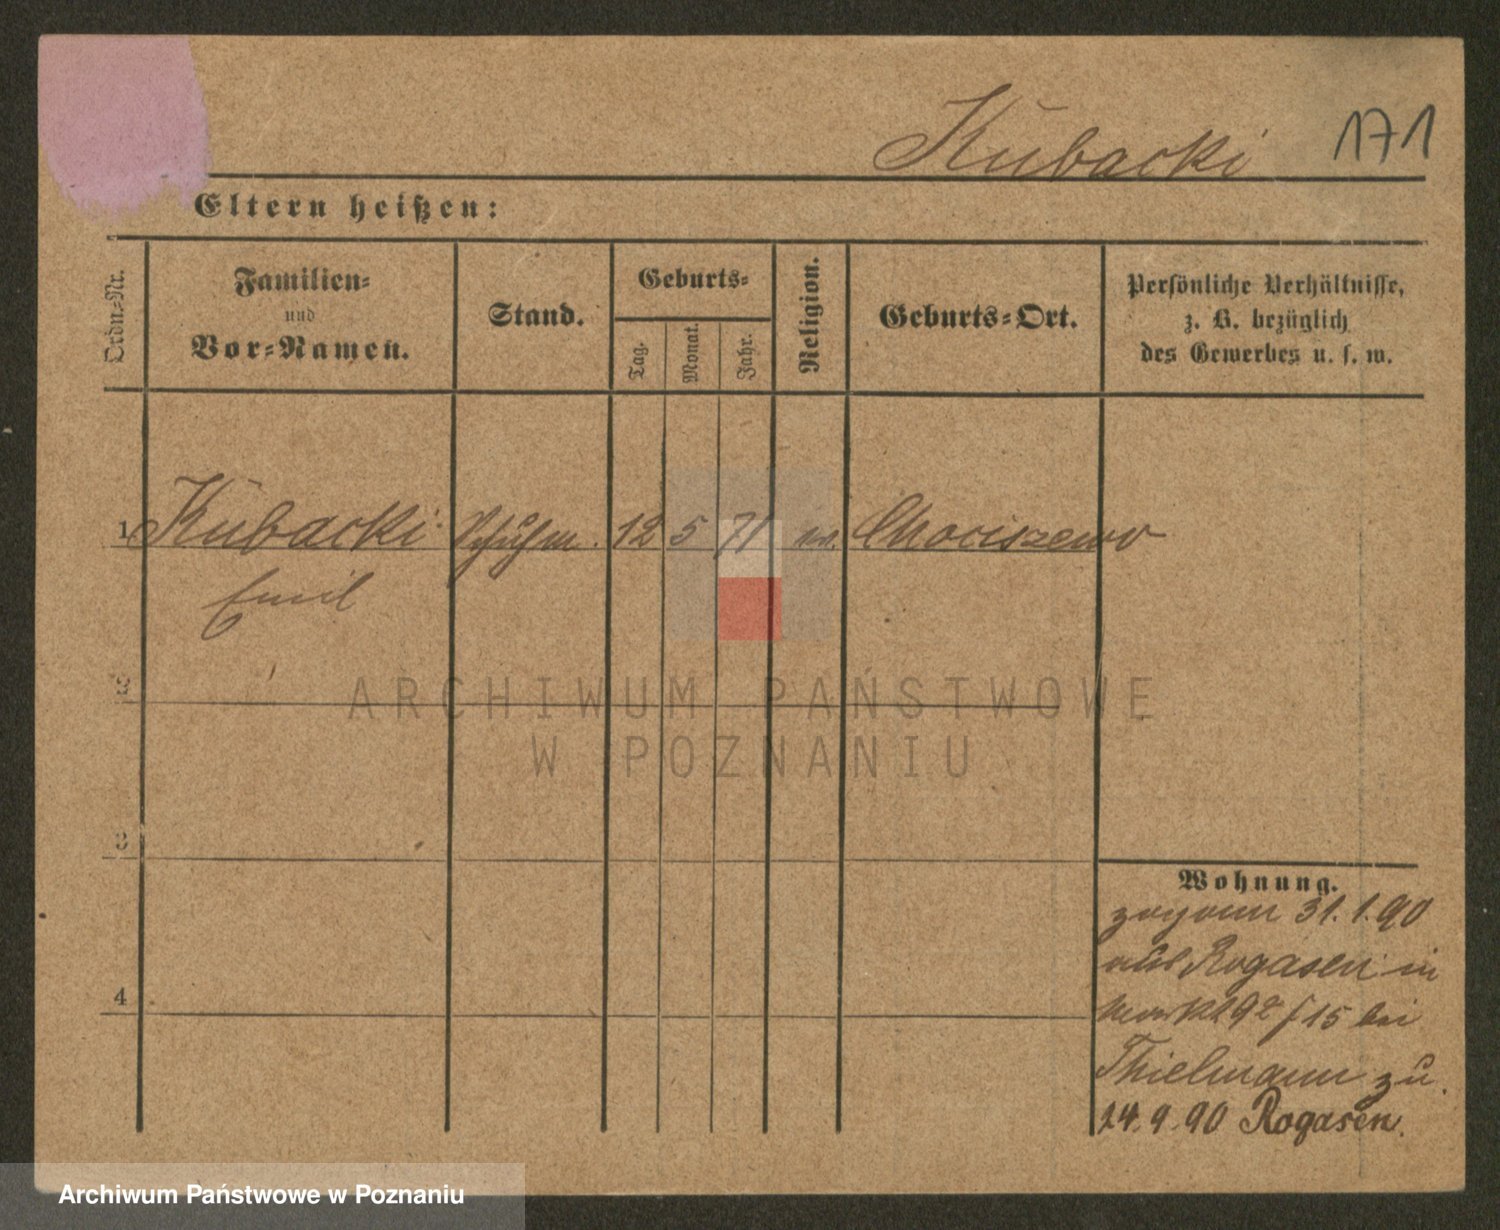 Kubacki 171
Eltern heißen:
Ordn.-Nr.
Familien-
und
Vor-Namen.
Stand.
Geburts-
Tag.
Monat.
Jahr.
Religion.
Geburts-Ort.
Persönliche Verhältnisse,
z. B. bezüglich
des Gewerbes u. s. w.
1 Kubacki 12 5 71 Chociszewo
Emil
2
ARCHIWUM PAŃSTWOWE
W POZNANIU
3
Wohnung.
31.1.90
aus Rogasen in
4
15 bei
Thielmann zu
24.9.90 Rogasen.
Archiwum Państwowe w Poznaniu